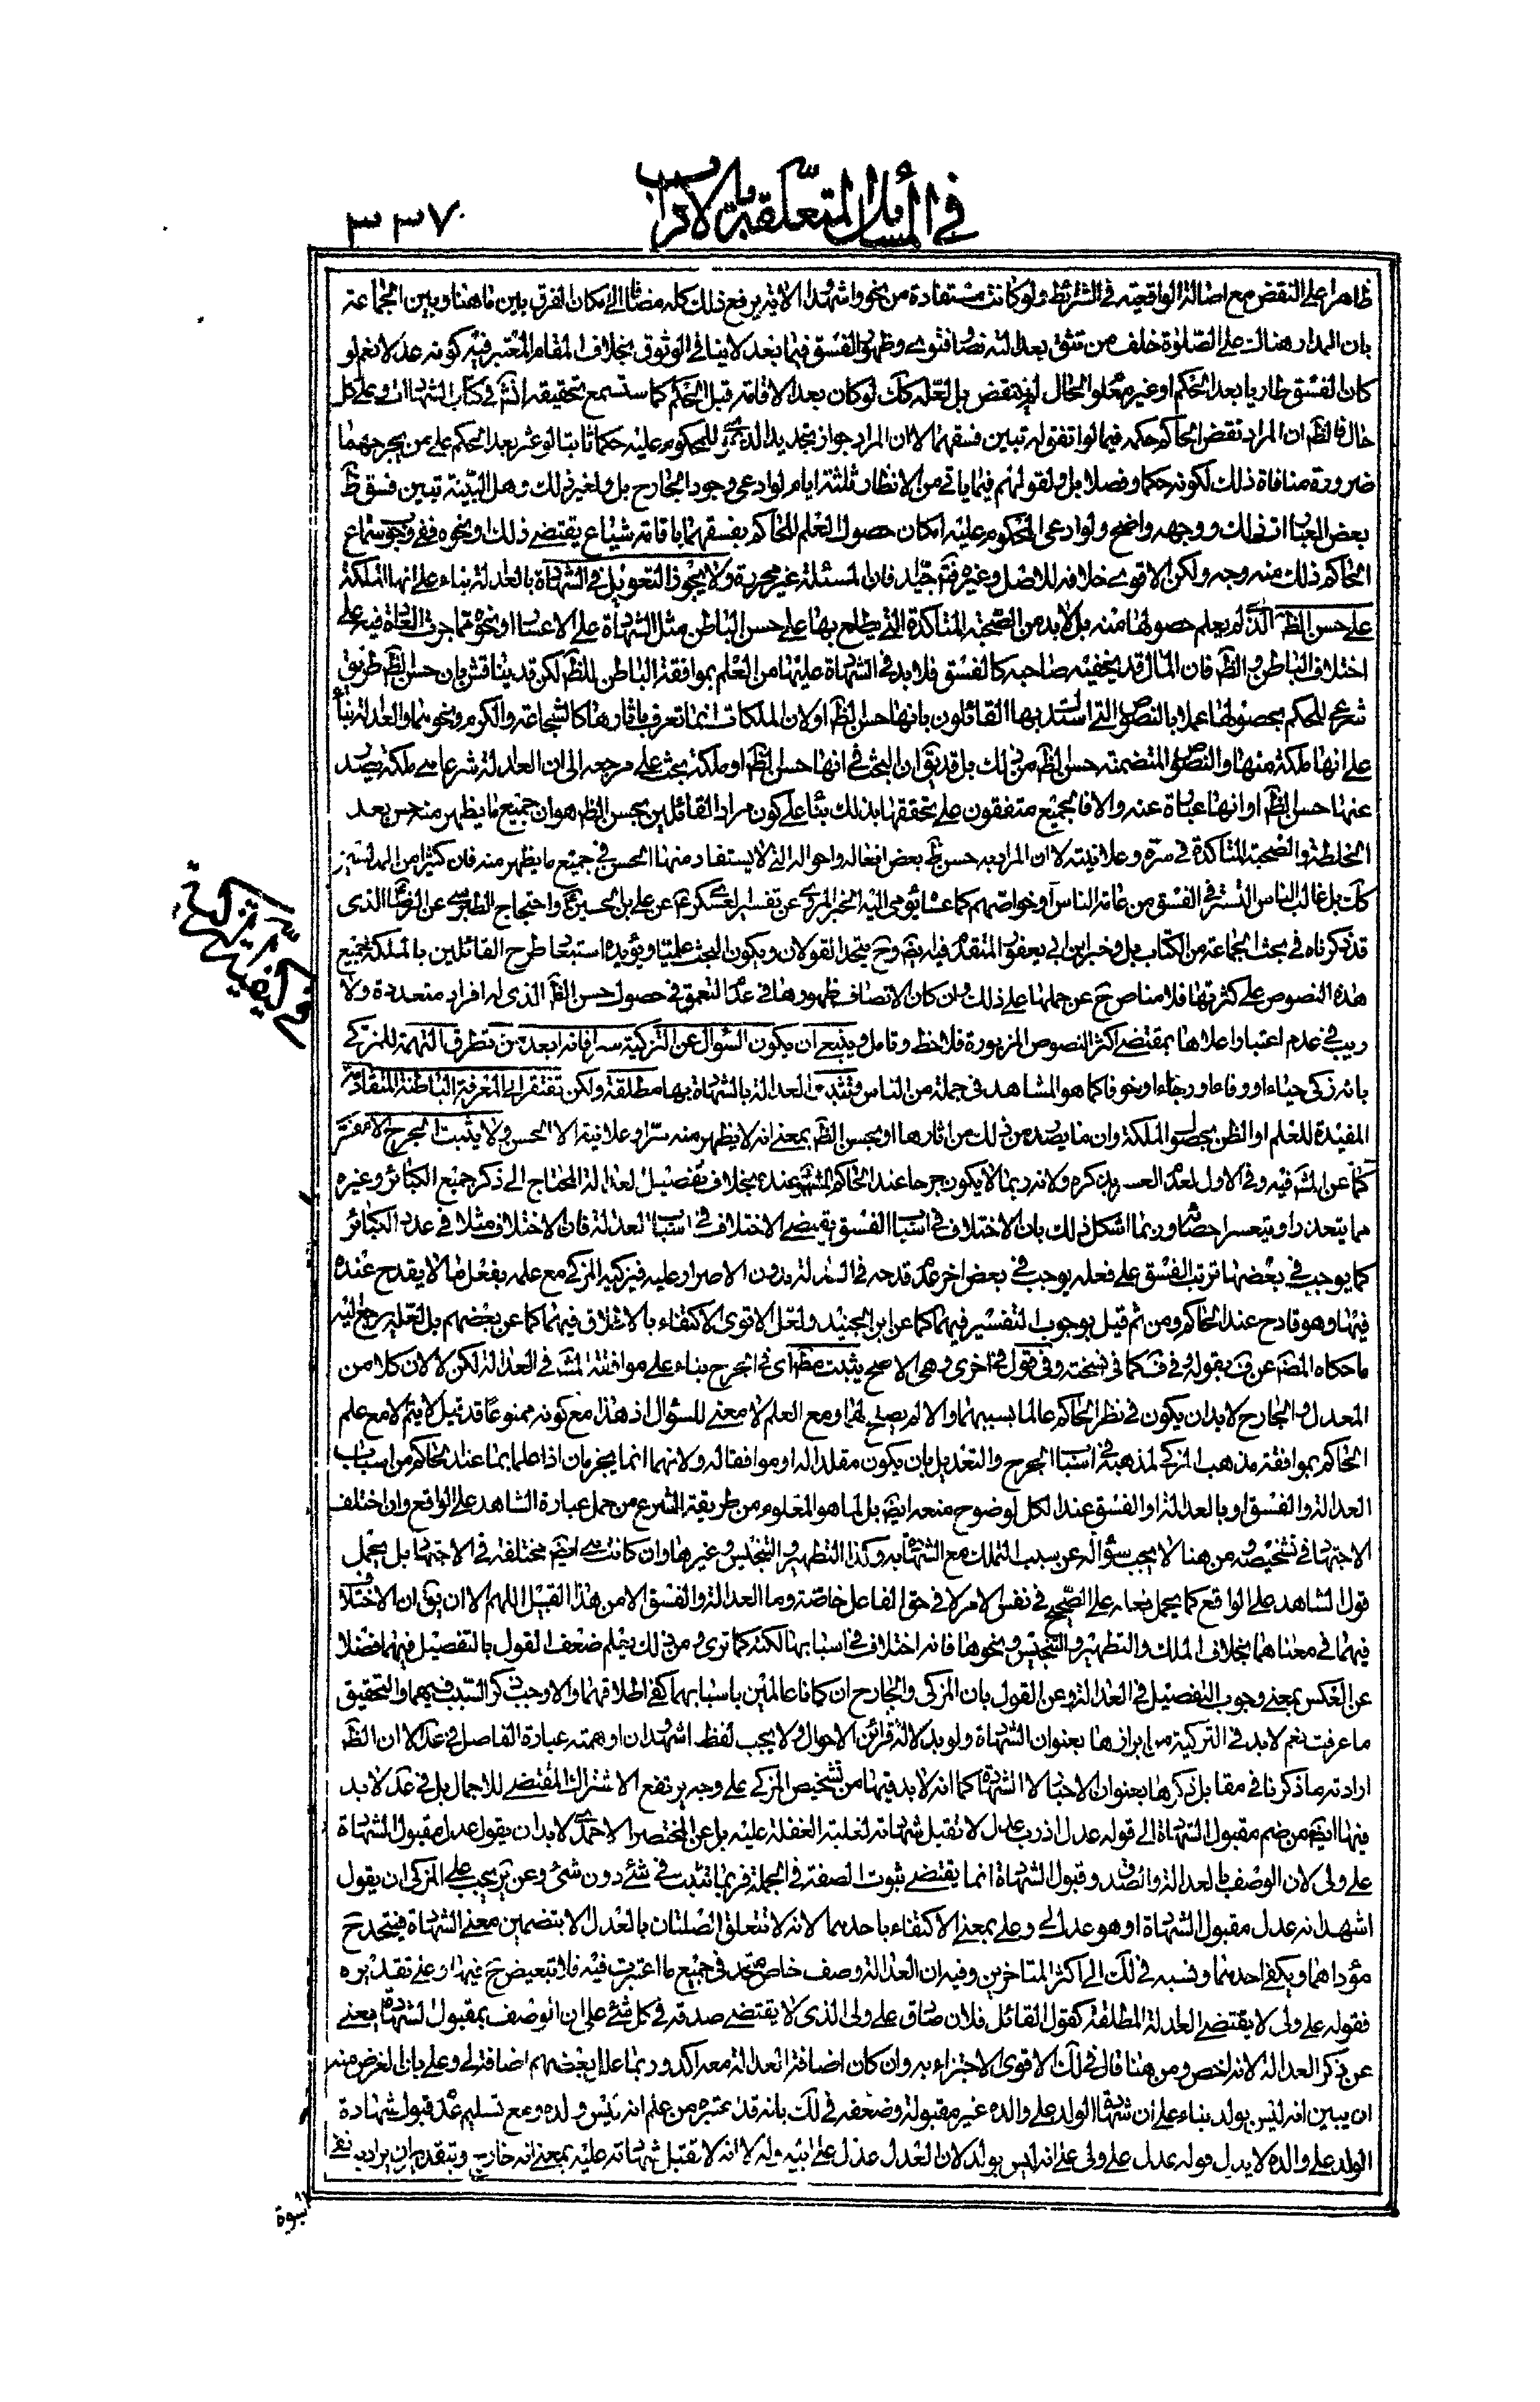 في المسائل المتعلقة بالاداب
٣٣٧
ظاهرا على النقض مع اصالة الواقعية في الشرائط ولو كانت مستفادة من نحو واشهدوا الاية يرفع ذلك كله مضافا الى امكان الفرق بين ما هنا وبين الجماعة
بان المدار هناك على الصلوة خلف من تثق بعدالته نصا وفتوى وظهور الفسق فيما بعد لا ينافي الوثوق بخلاف المقام المعتبر فيه كونه عدلا نعم لو
كان الفسق طاريا بعد الحكم او غير معلوم الحال لم ينقض بل لعله كك لو كان بعد الاقامة قبل الحكم كما ستسمع تحقيقه انش في كتاب الشهادات وعلى كل
حال فالظ ان المراد نقض الحاكم حكمه فيما لو اتفق له تبين فسقهما لا ان المراد جواز تجديد الدعوى للمحكوم عليه حكما ثابتا لو عثر بعد الحكم على من يجرحهما
ضرورة منافاة ذلك لكونه حكما وفصلا بل ولقولهم فيما ياتي من الانظار ثلثة ايام لو ادعى وجود الجارح بل ولغير ذلك وهل البينة تبين فسق ظ
بعض العبارات ذلك ووجهه واضح ولو ادعى المحكوم عليه امكان حصول العلم للحاكم بفسقهما باقامة شياع يقتضي ذلك او نحوه ففي وجوب سماع
الحاكم ذلك منه وجه ولكن الاقوى خلافه للاصل وغيره فت جيد فان المسئلة غير محررة ولا يجوز التعويل في الشهادة بالعدالة بناء على انها الملكة
على حسن الظاهر الذي لم يعلم حصولها منه بل لابد من الصحبة المتاكدة التي يطلع بها على حسن الباطن مثل الشهادة على الاعسار او نحوه مما جرت العادة فيه على
اختلاف الباطن والظ فان المال قد يخفيه صاحبه كالفسق فلا بد في الشهادة عليها من العلم بموافقة الباطن للظ لكن قد يناقش بان حسن الظ طريق
شرعي للحكم بحصولها عملا بالنصوص التي استدل بها القائلون بانها حسن الظ او لان الملكات انما تعرف باثارها كالشجاعة والكرم ونحوهما والعدالة بناء
على انها ملكة منها والنصوص المتضمنة حسن الظ من ذلك بل قد يق ان البحث في انها حسن الظ او ملكة بحث علمي مرجعه الى ان العدالة شرعا هي ملكة يصدر
عنها حسن الظ او انها عبارة عنه والا فالجميع متفقون على تحققها بذلك بناء على كون مراد القائلين بحسن الظ هو ان جميع ما يظهر منه حسن بعد
الخلطة والصحبة المتاكدة في سره وعلانيته لا ان المراد به حسن ظ بعض افعاله واحواله التي لا يستفاد منها الحسن في جميع ما يظهر منه فان كثيرا من المدلسين
كك بل غالب الناس التستر في الفسق من عامة الناس او خواصهم كما عساه يومي اليه الخبر المروي عن تفسير العسكري ع عن علي بن الحسين ع واحتجاج الطبرسي عن الرضا ع الذي
قد ذكرناه في بحث الجماعة من الكتاب بل وخبر ابن ابي يعفور المتقدم فيه ايض وح يتحد القولان ويكون البحث علميا ويؤيده استبعاد طرح القائلين بالملكة جميع
هذه النصوص على كثرتها فلا مناص ح عن حملها على ذلك وان كان الانصاف ظهورها في عدم التعمق في حصول حسن الظ الذي له افراد متعددة ولا
ريب في عدم اعتبار اعلاها بمقتضى اكثر النصوص المزبورة فلاحظ وتامل وينبغي ان يكون السؤال عن التزكية سرا فانه ابعد من تطرق التهمة للمزكى
بانه زكى حياء او وفاء او رجاء او خوفا كما هو المشاهد في جملة من الناس وتثبت العدالة بالشهادة بها مطلقة ولكن تفتقر الى المعرفة الباطنة المتقادمة
المفيدة للعلم او الظن بحصول الملكة وان ما يصدر من ذلك من اثارها او بحسن الظ بمعنى انه لا يظهر منه سرا وعلانية الا الحسن ولا يثبت الجرح الا مفسرا
كما عن المش فيه وفي الاول لعدم العسر بذكره ولانه ربما لا يكون جرحا عند الحاكم المشهود عنده بخلاف تفصيل العدالة المحتاج الى ذكر جميع الكبائر وغيره
مما يتعذر او يتعسر احصائه وربما اشكل ذلك بان الاختلاف في اسباب الفسق يقتضي الاختلاف في اسباب العدالة فان الاختلاف مثلا في عدد الكبائر
كما يوجب في بعضها ترتب الفسق على فعله يوجب في بعض اخر عدم قدحه في العدالة بدون الاصرار عليه فيزكيه المزكي مع علمه بفعل ما لا يقدح عنده
فيها وهو قادح عند الحاكم ومن ثم قيل بوجوب التفسير فيهما كما عن ابن الجنيد ولعل الاقوى الاكتفاء بالاطلاق فيهما كما عن بعضهم بل لعله يرجع اليه
ما حكاه المص عن ف بقوله وفي ف كما في نسخته وفي قول كما في اخرى وهي الاصح يثبت مط اي في الجرح بناء على موافقته المش في العدالة لكن لا لان كلا من
المعدل والجارح لا بد ان يكون في نظر الحاكم عالما بسببهما والا لم يصلح لهما ومع العلم لا معنى للسؤال اذ هذا مع كونه ممنوعا قد قيل لا يتم الا مع علم
الحاكم بموافقة مذهب المزكي لمذهبه في اسباب الجرح والتعديل بان يكون مقلدا له او موافقا له ولانهما انما يخبران اذا علما بما عند الحاكم من اسباب
العدالة والفسق او بالعدالة او الفسق عند الكل لوضوح منعه ايض بل لما هو المعلوم من طريقة الشرع من حمل عبارة الشاهد على الواقع وان اختلف
الاجتهاد في تشخيصه ومن هنا لا يجب سؤاله عن سبب التملك مع الشهادة به وكذا التطهير والتنجيس وغيرها وان كانت هي ايض مختلفة في الاجتهاد بل يحمل
قول الشاهد على الواقع كما يحمل فعله على الصحيح في نفس الامر لا في حق الفاعل خاصة وما العدالة والفسق الا من هذا القبيل اللهم الا ان يق ان الاختلاف
فيهما في معناهما بخلاف الملك والتطهير والتنجيس ونحوها فانه اختلاف في اسبابها لكنه كما ترى ومن ذلك يعلم ضعف القول بالتفصيل فيهما فضلا
عن العكس بمعنى وجوب التفصيل في العدالة وعن القول بان المزكي والجارح ان كانا عالمين باسبابهما كفى اطلاقهما والا وجب ذكر السبب فيهما والتحقيق
ما عرفت نعم لا بد في التزكية من ابرازها بعنوان الشهادة ولو بدلالة قرائن الاحوال ولا يجب لفظ اشهد ان اوهمته عبارة الفاضل في عد الا ان الظ
ارادته ما ذكرنا في مقابل ذكرها بعنوان الاخبار لا الشهادة كما انه لا بد فيها من تشخيص المزكى على وجه يرتفع الاشتراك المقتضي للاجمال بل في عد لا بد
فيها ايض من ضم مقبول الشهادة الى قوله عدل اذ رب عدل لا تقبل شهادته لغلبة الغفلة عليه بل عن المختصر الاحمدي لا بد ان يقول عدل مقبول الشهادة
علي ولي لان الوصف بالعدالة والصدق وقبول الشهادة انما يقتضي ثبوت الصفة في الجملة فربما تثبت في شيء دون شيء وعن ير يجب على المزكي ان يقول
اشهد انه عدل مقبول الشهادة او هو عدل لي وعلي بمعنى الاكتفاء باحدهما لانه لا تتعلق الصلتان بالعدل الا بتضمين معنى الشهادة فيتحد ح
مؤداهما ويكفي احدهما ونسبه في لك الى اكثر المتاخرين وفيه ان العدالة وصف خاص متحد في جميع ما اعتبرت فيه فلا تبعيض ح فيها وعلى تقديره
فقوله علي ولي لا يقتضي العدالة المطلقة كقول القائل فلان صادق علي ولي الذي لا يقتضي صدقه في كل شيء على ان الوصف بمقبول الشهادة يغني
عن ذكر العدالة لانه اخص ومن هنا قال في لك الاقوى الاجتزاء به وان كان اضافة العدالة معه اكد وربما علل بعضهم اضافة لي وعلي بان الغرض منه
ان يبين انه ليس بولد بناء على ان شهادة الولد على والده غير مقبولة وضعفه في لك بانه قد يعتبره من علم انه ليس ولده ومع تسليم عدم قبول شهادة
الولد على والده لا يدل قوله عدل علي ولي على انه ليس بولد لان العدل عدل على ابيه وله الا انه لا تقبل شهادته عليه بمعنى انه خارج وبتقدير ان يراد به نفي
في كيفية التزكية
بنوة